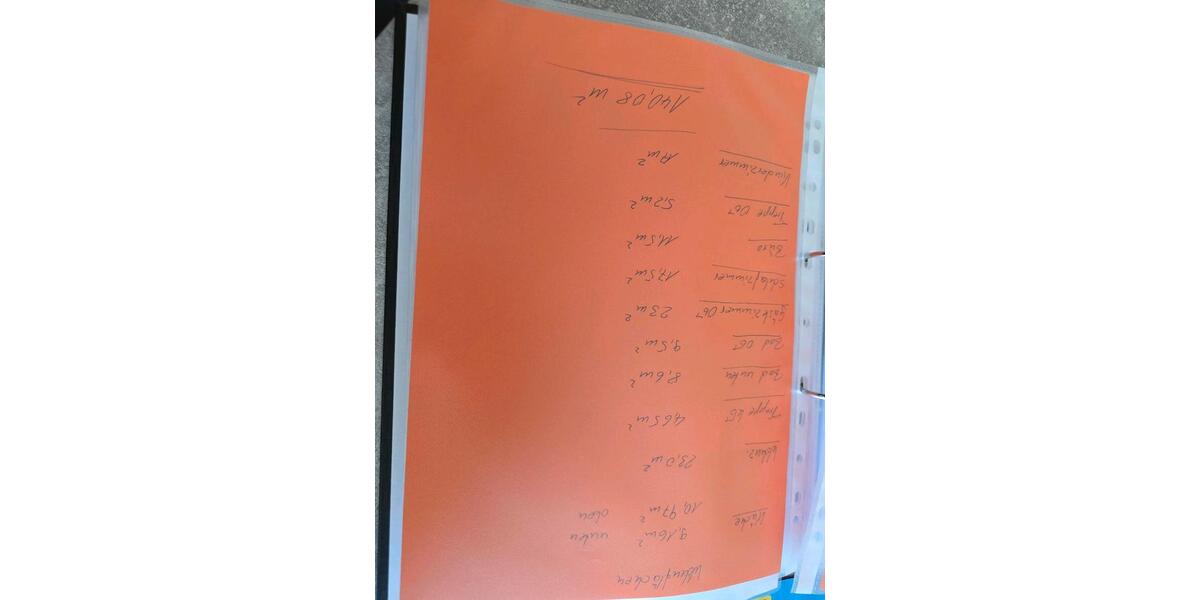 Wohnflächen
Küche 9,16 m² unten
10,97 m² oben
Wohnz. 23,0 m²
Treppe EG 4,65 m²
Bad unten 8,6 m²
Bad OG 9,5 m²
Gästezimmer OG 23 m²
Schlafzimmer 17,5 m²
Büro 11,5 m²
Treppe OG 5,2 m²
Kinderzimmer 17 m²
140,08 m²